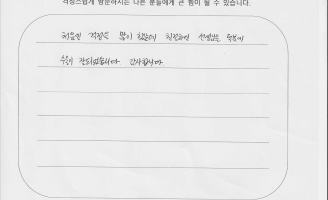 걱정스럽게 방문하시는 다른 분들에게 큰 힘이 될 수 있습니다.
처음엔 걱정을 많이 했는데 친절하신 선생님들 덕분에
수술이 잘되었습니다 감사합니다